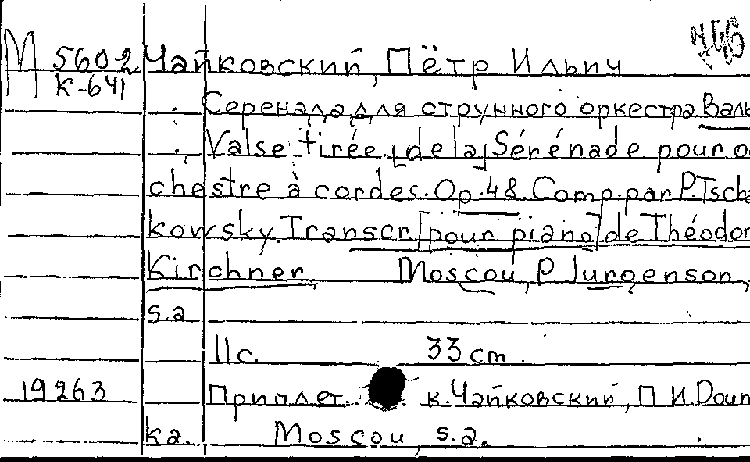 М 5602 Чайковский, Пётр Ильич
К-641
Серенада для струнного оркестра Валь
Valse tirée [de la] Sérénade pour o
chestre à cordes. Op. 48. Comp. par P. Tscha
kowsky. Transcr. [pour piano] de Théodor
Kirchner. Moscou, P. Jurgenson,
s.a.
11 с. 33 cm.
19263 Приплет. к. Чайковский, П. И. Doum
ka. Moscou, s.a.